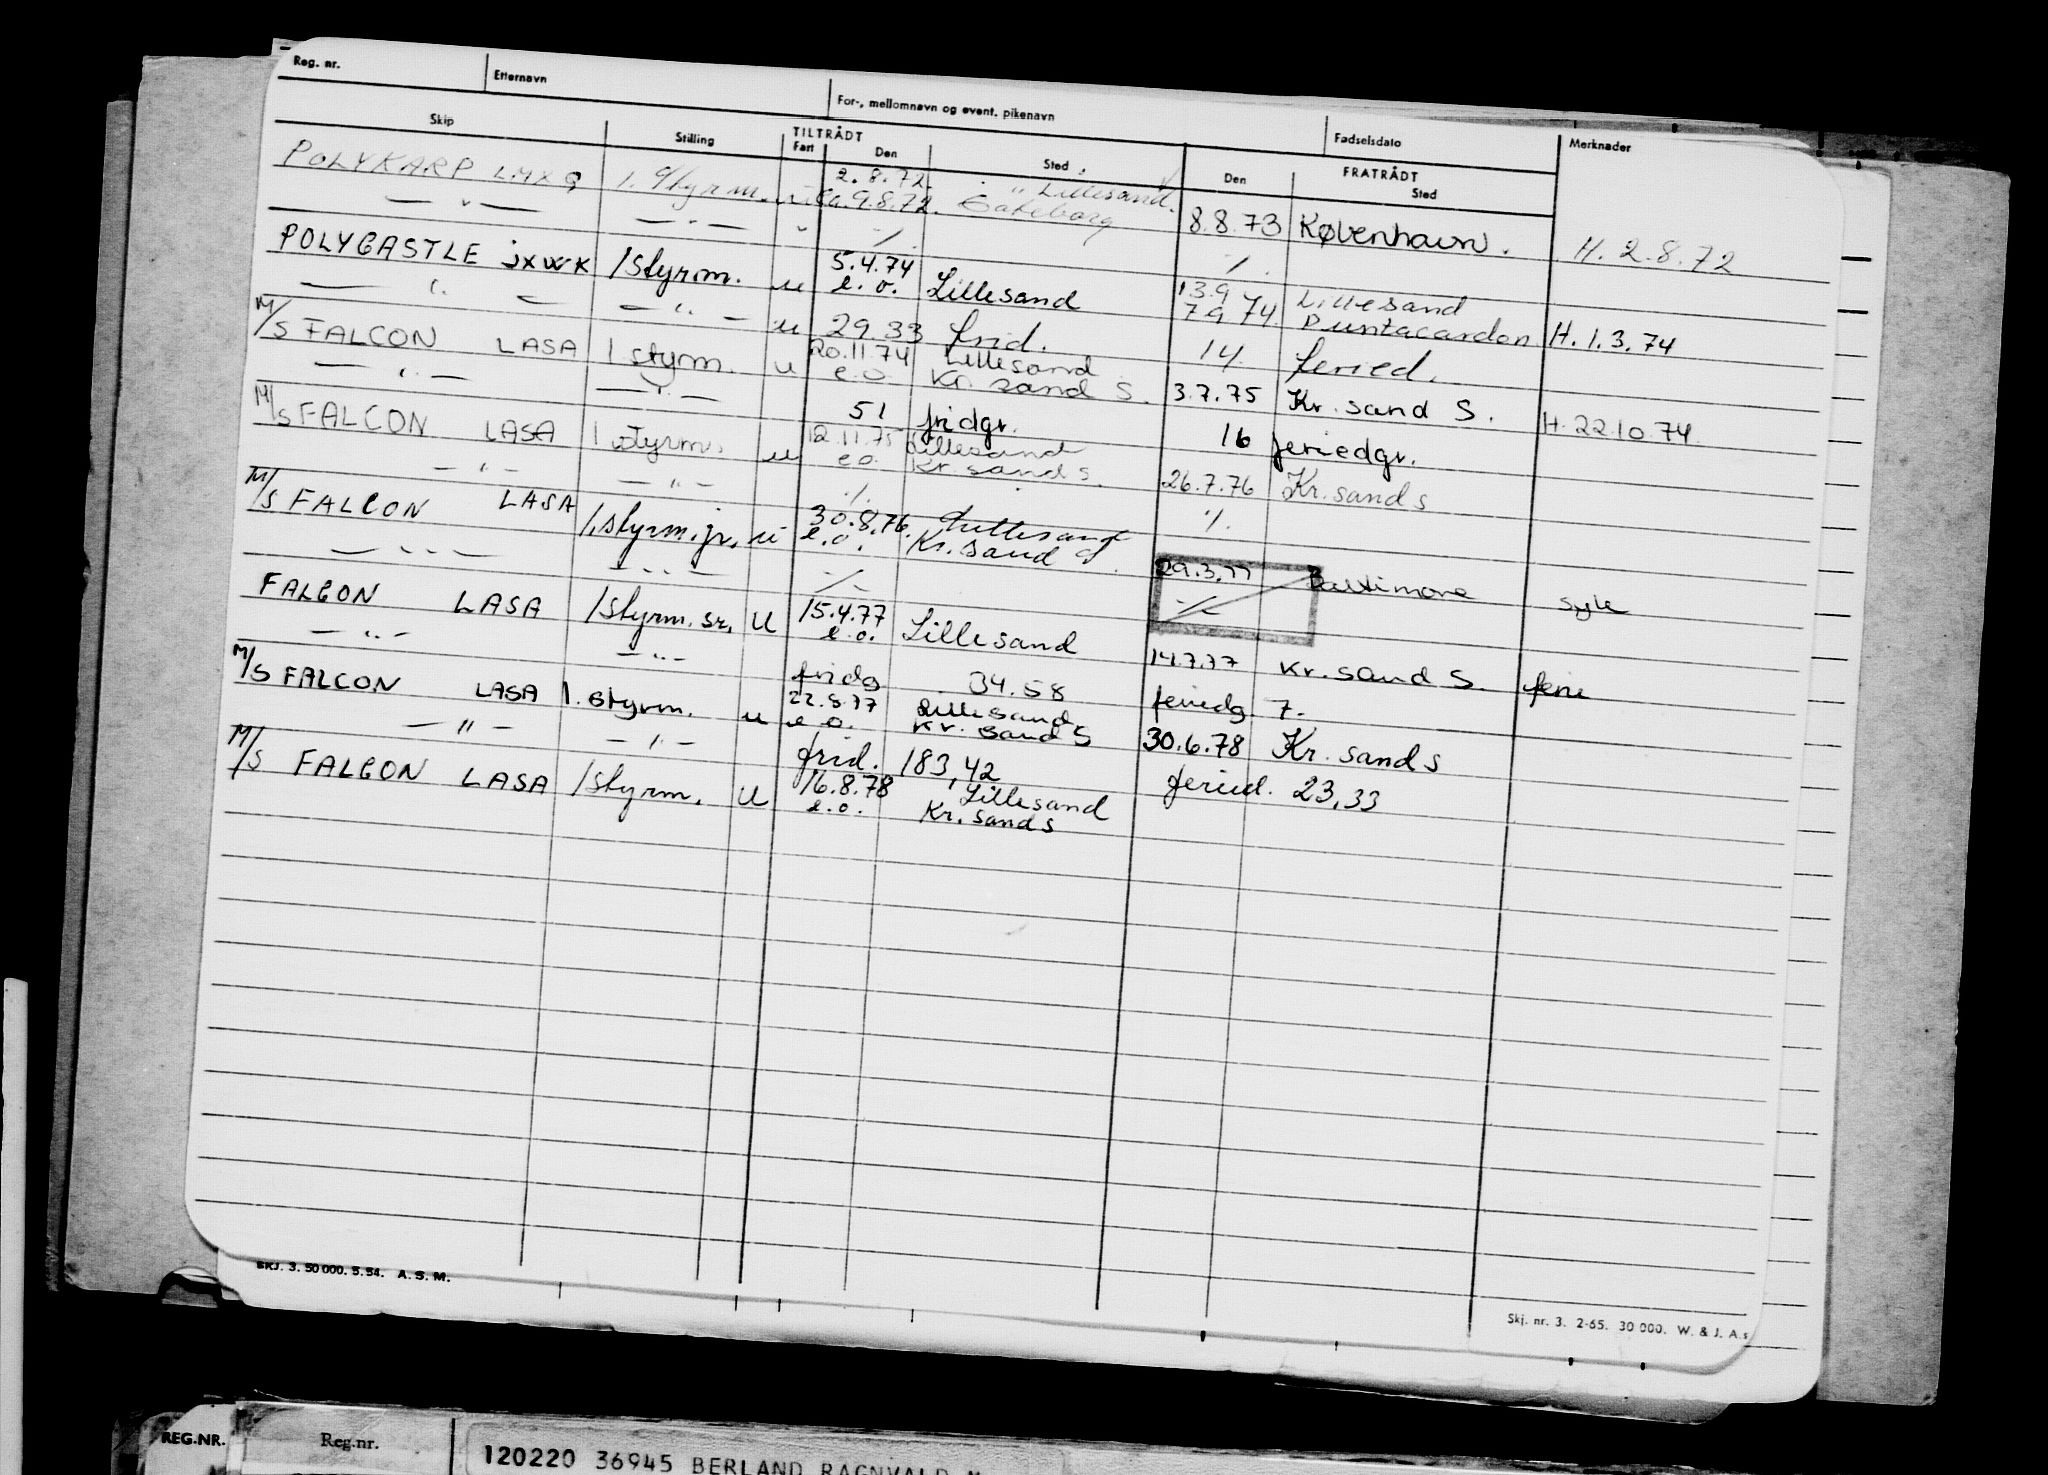 Reg. nr. Etternavn For-, mellomnavn og event. pikenavn Fødselsdato Merknader
Skip Stilling TILTRÅDT Fart Den Sted FRATRÅDT Den Sted
POLYKARP LMXQ 1. styrm. 2.8.72. Lillesand.
— " — — " — " ca. 9.8.72. Gøteborg 8.8.73 København. H. 2.8.72
·/. ·/.
POLYCASTLE JXWK 1styrm. u 5.4.74 e.o. Lillesand 13.9 Lillesand
— " — — " — u 29.33 frid. 7.9.74 Puntacardon H. 1.3.74
M/S FALCON LASA 1 styrm. u 20.11.74 Lillesand 14 feried.
— " — — " — e.o. Kr. sand S. 3.7.75 Kr. sand S. H. 22.10.74
51 fridgr. 16 feriedgr.
M/S FALCON LASA 1 styrm. u 12.11.75 Lillesand
— " — — " — e.o. Kr. sand S. 26.7.76 Kr. sand S
·/. ·/.
M/S FALCON LASA 1. styrm. jr. u 30.8.76. Lillesand
— " — — " — e.o. Kr. sand S. 29.3.77 Baltimore syk
·/. ·/.
FALCON LASA 1styrm. sr. U 15.4.77 e.o. Lillesand
— " — — " — 14.7.77 Kr. sand S. ferie
fridg 34.58 feriedg. 7.
M/S FALCON LASA 1. styrm. u 22.8.77 Lillesand
— " — — " — e.o. Kr. sand S 30.6.78 Kr. sand S
frid. 183,42 feried. 23,33
M/S FALCON LASA 1styrm. U 16.8.78 Lillesand
e.o. Kr. sand S
SKJ. 3. 50 000. 5. 54. A. S. M.
Skj. nr. 3. 2-65. 30 000. W. & J. A.s
REG.NR. Reg.nr.
120220 36945 BERLAND RAGNVALD